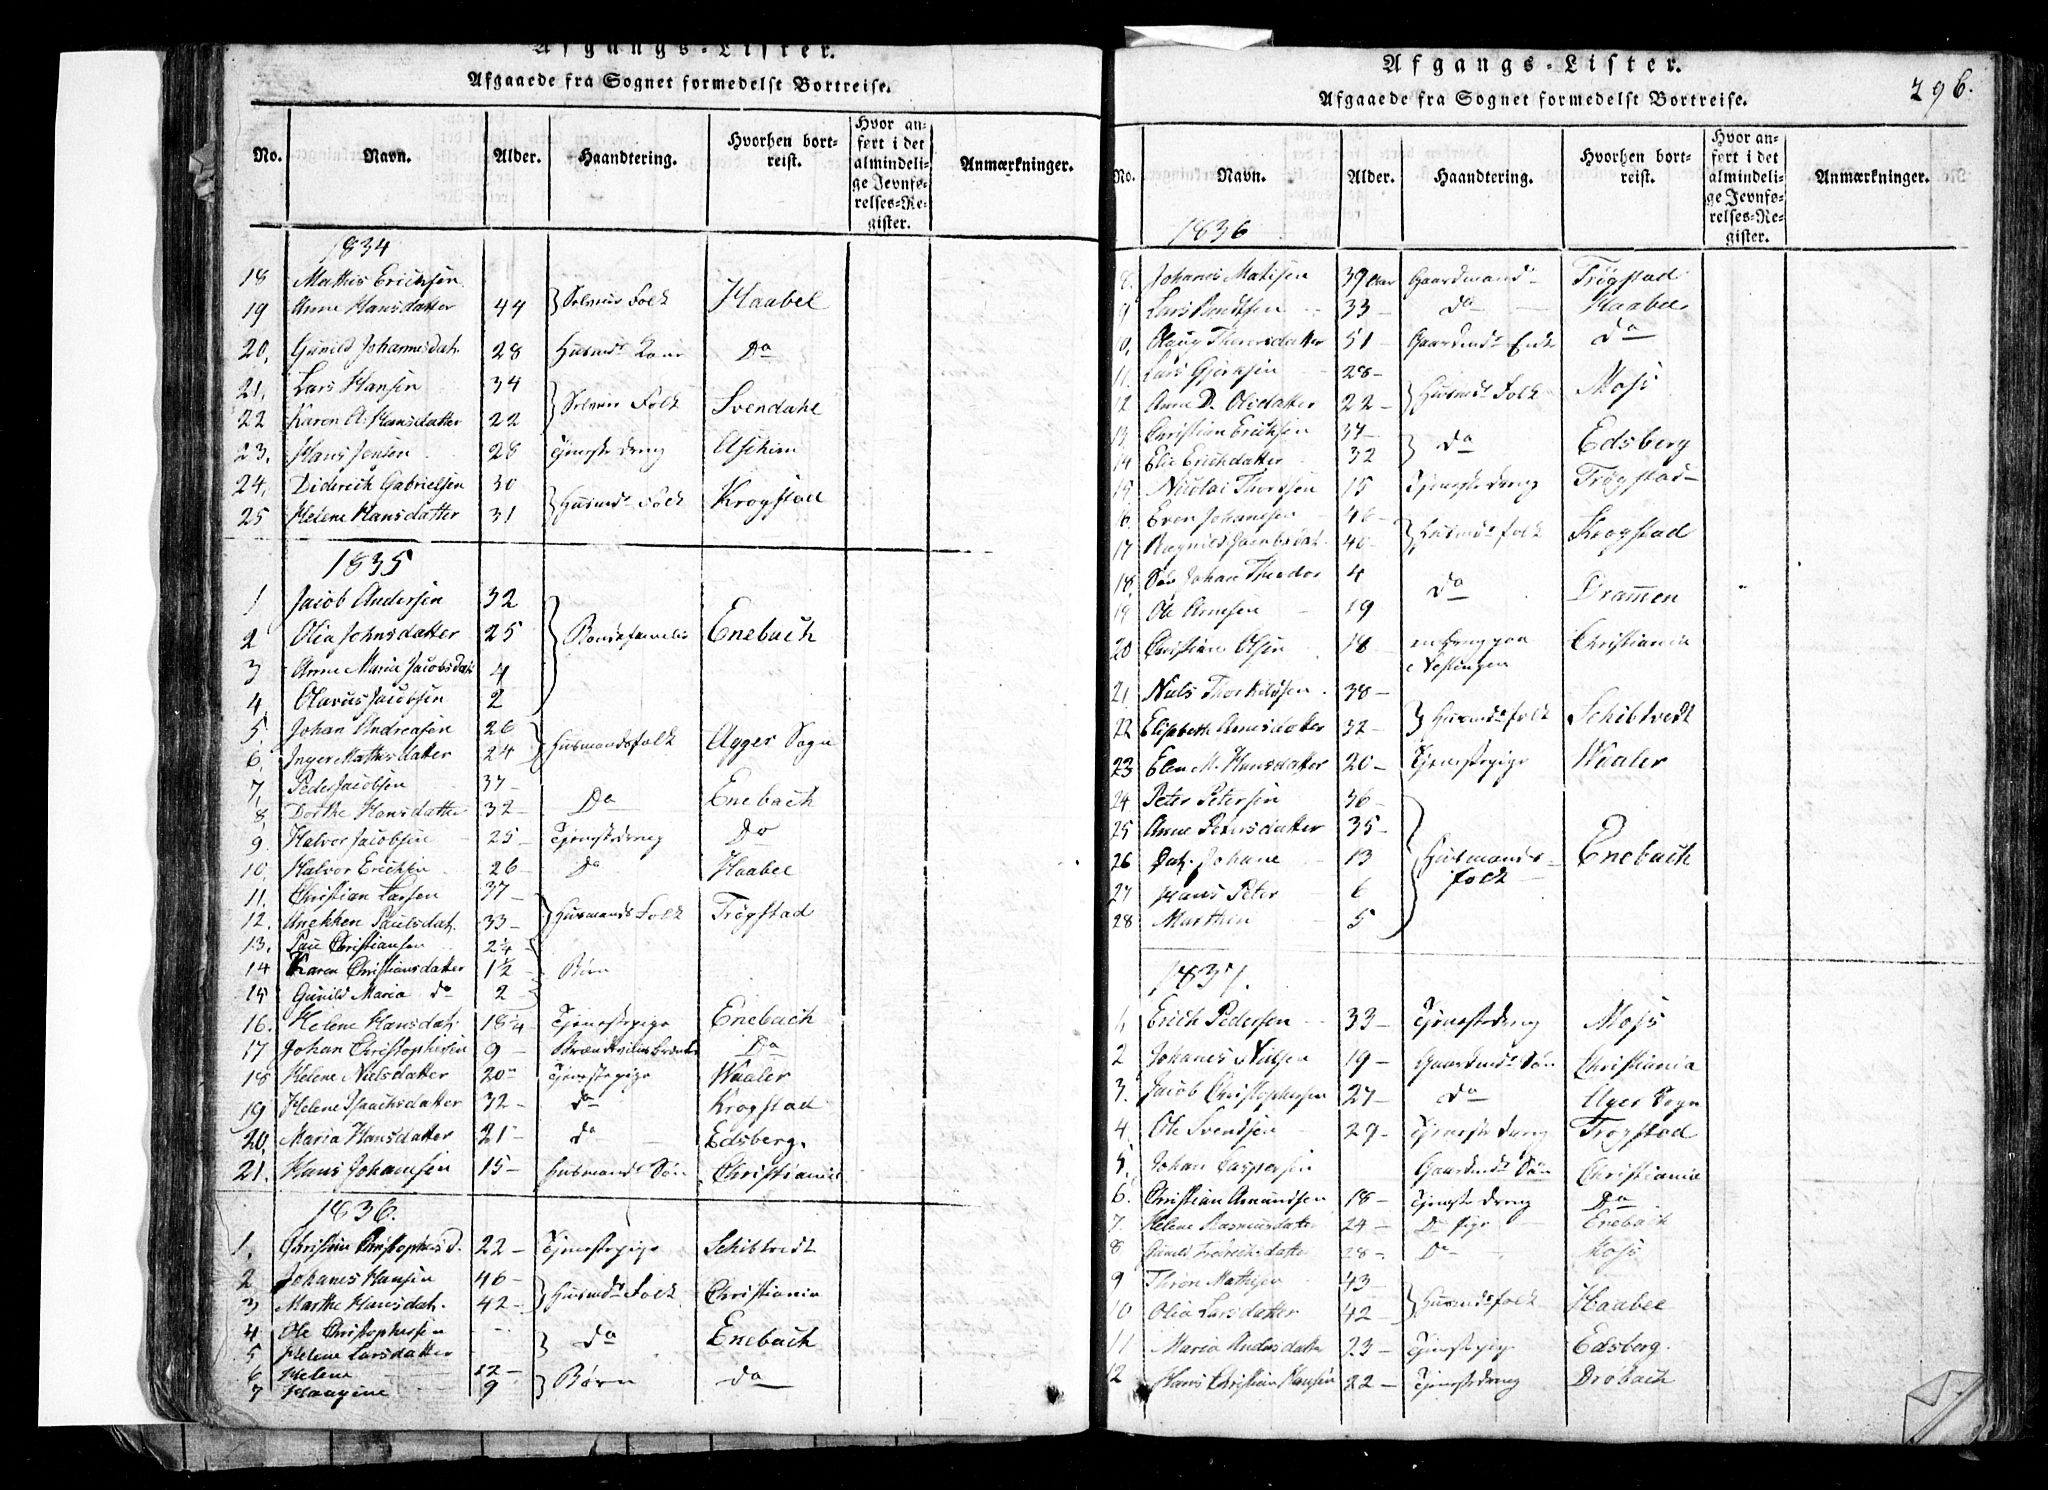 Afgangs-Lister.
Afgaaede fra Sognet formedelst Bortreise.
No. Navn. Alder. Haandtering. Hvorhen bortreist. Hvor anført i det almindelige Jevnførelses-Register. Anmærkninger.
1834
18 Mathis Erichsen
19 Anne Hansdatter 44 Folk Haabel
20, Gunild Johannesdat. 28 Husmds Kone Do
21, Lars Hansen 34
22 Karen A. Hansdatter 22 Folk Svendahl
23, Hans Jensen 28 Tjenestedreng Aschim
24, Diderich Gabrielsen 30
25 Helene Hansdatter 31 Husmds Folk Krogstad
1835
1 Jacob Andersen 32
2 Olia Johnsdatter 25 Bondefamilie Enebach
3 Anne Maria Jacobsdat 4
4, Olavus Jacobsen 2
5, Johan Andreasen 26
6, Inger Mathisdatter 24 Husmandsfolk Agger Sogn
7, Peder Jacobsen 37
8, Dorthe Hansdatter 32 Do Enebach
9, Halvor Jacobsen 25 Tjenestedreng Do
10, Halvor Erichsen 26 Do Haabel
11, Christian Larsen 37
12. Anekken Paulsdat. 33 Husmands Folk Trögstad
13, Paul Christiansen 2¼
14 Karen Christiansdatter 1½ Børn
15 Gunild Maria do 2
16. Helene Hansdat. 18¼ Tjenestepige Enebach
17 Johan Christophersen 9 Do
18 Helene Nielsdatter 20 Tjenestepige Waaler
19 Helene Isaachsdatter 32 do Krogstad
20, Maria Hansdatter 21 do Edsberg.
21. Hans Johannsen 15 Husmands Sön Christiania
1836.
1. Christine Christophersd. 22 Tjenestepige Schibtvedt
2 Johanes Hansen 46
3 Marthe Hansdat. 42 Husmds Folk Christiania
4 Ole Christophersen
5 Helene Larsdatter do Enebach
6 Helene 12
7 Haagine 9 Børn do
Afgangs-Lister.
Afgaaede fra Sognet formedelst Bortreise.
296.
No. Navn. Alder. Haandtering. Hvorhen bortreist. Hvor anført i det almindelige Jevnførelses-Register. Anmærkninger.
1836
8. Johanes Matisen 39 Aar Gaardmand Trögstad
9 Lars 33 do Haabel
0, Olaug 51 Gaardmds Enke do
11. Lars 28
12 Anne D. Olsdatter 22 Husmds Folk Moss
13, Christian Erichsen 37
14 Elie Erichdatter 32 do Edsberg
15 Nicolai Thordsen 15 Tjenestedreng Trögstad
16. Even Johanesen 46
17 Ragnild Jacobsdat. 40 Husmds folk Krogstad
18. Sön Johan Theodor 4
19 Ole Arnesen 19 do Drammen
20 Christian Olsen 18 Christiania
21, Niels Thorkildsen 38
22 Elisabeth Arnesdatter 32 Husmds folk Schibtvedt
23 Elen M. Hansdatter 20 Tjenestepige Waaler
24 Peter Petersen 36
25 Anne 35
26 Dat. Johane 13 Husmands folk Enebach
27 Hans Peter 6
28 Marthin 5
1837.
1, Erich Pedersen 33 Tjenestedreng Moss
2 Johanes Nilsen 19 Gaardmds Sön Christiania
3. Jacob Christophersen 27 do Sogn
4. Ole Svendsen 29 Tjenestedreng Trögstad
5. Johan Caspersen Gaardmds Sön Christiania
6. Christian Amundsen 18 Tjenestedreng Do
7. Helene Rasmusdatter 24 Do Pige Enebach
8 Gunild Fredrichsdatter 28 Do Moss
9 Thron Mathisen 43
10 Olia Larsdatter 42 Husmdsfolk Haabel
11 Maria Andersdatter 23 Tjenestepige Edsberg.
12 Hans Christian Hansen 22 Tjenestedreng Drobach